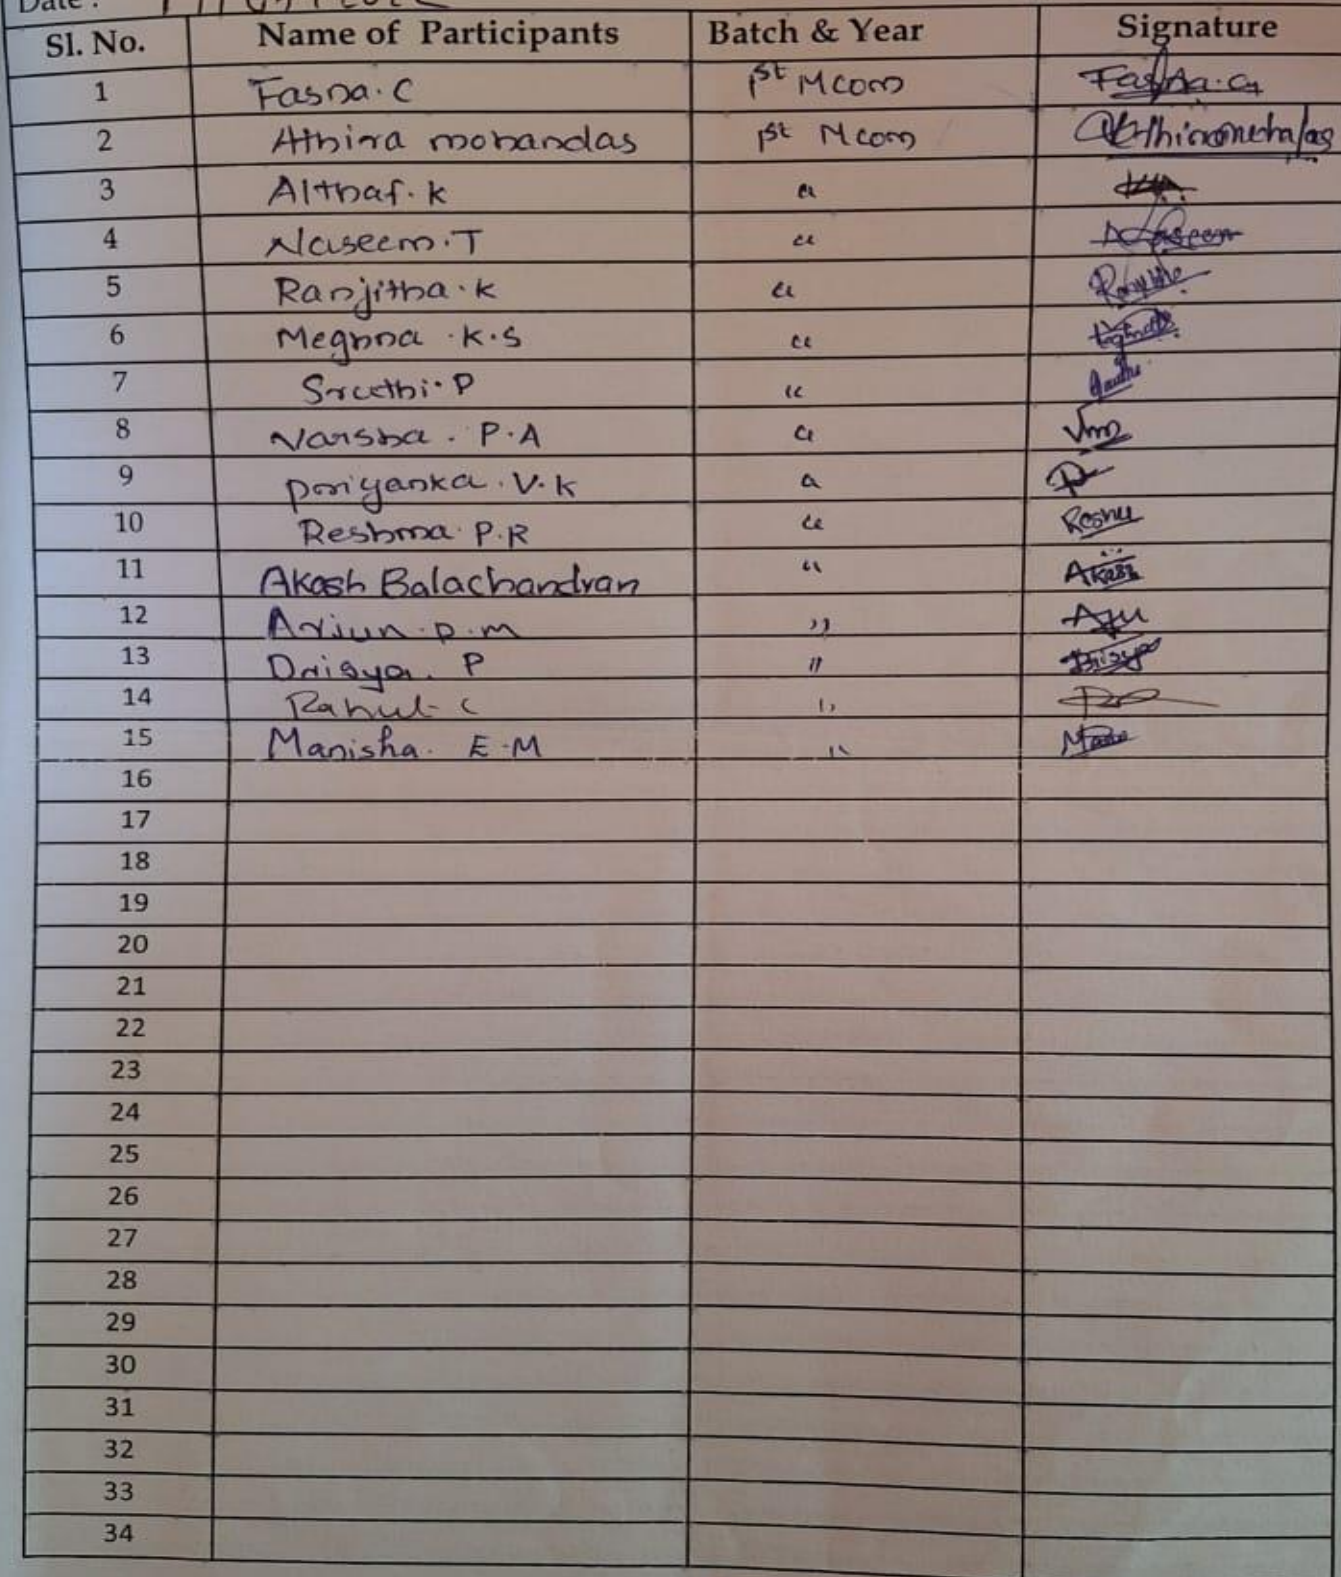 Date :
Sl. No. Name of Participants Batch & Year Signature
1 Fasna. C 1st Mcom Fasna. C
2 Athira mohandas 1st Mcom Athiramohandas
3 Althaf. K "
4 Naseem. T " Naseem
5 Ranjitha. K " Ranjitha
6 Meghna . K.S "
7 Sruthi. P "
8 Varsha . P.A "
9 Priyanka . V. K "
10 Reshma. P.R " Reshu
11 Akash Balachandran " Akash
12 Arjun. p. m " Aju
13 Drisya. P " Drisya
14 Rahul. C "
15 Manisha. E.M "
16
17
18
19
20
21
22
23
24
25
26
27
28
29
30
31
32
33
34